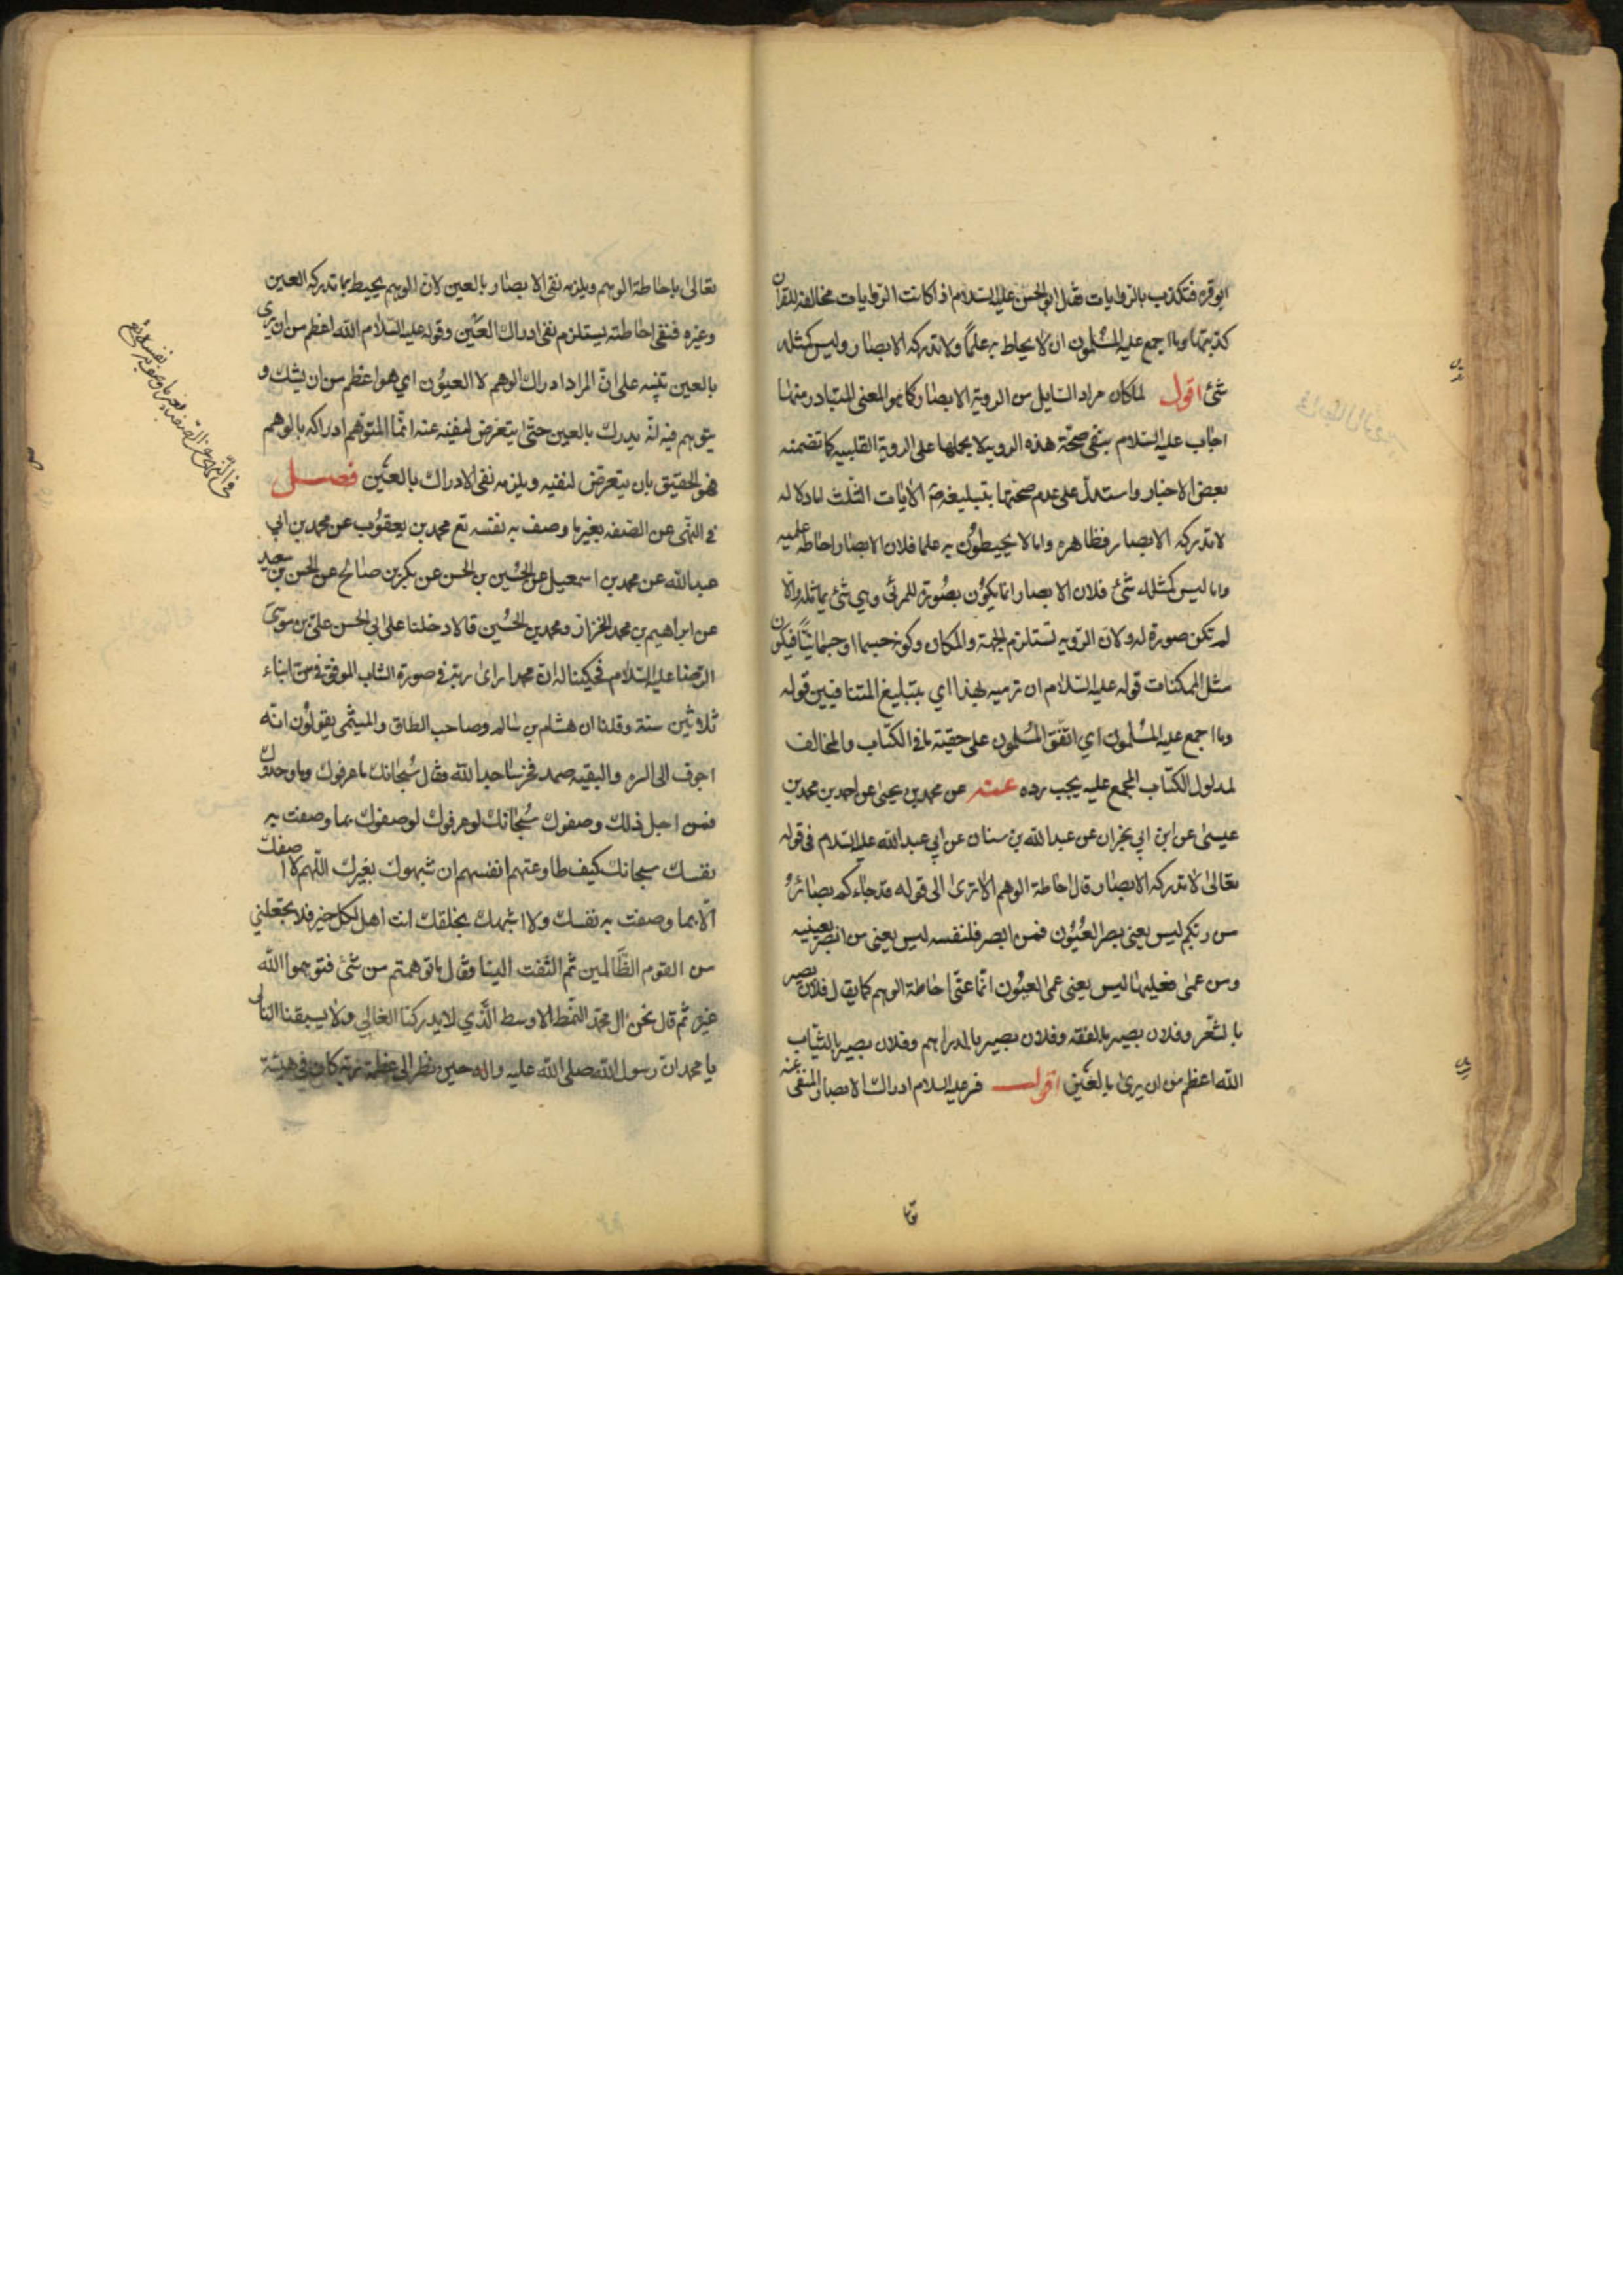 ابو قره فتكذب بالروايات فقال ابو الحسن عليه السلام اذا كانت الروايات مخالفة للقران
كذبتها وما اجمع عليه المسلمون ان لا يحاط به علما ولا تدركه الابصار وليس كمثله
شئ اقول لما كان مراد السايل من الروية الابصار كما هو المعنى المتبادر منها
اجاب عليه السلام بنفي صحة هذه الروية لا بحملها على الروية القلبيه كما تضمنه
بعض الاخبار واستدل على عدم صحتها بتبليغه ص الايات الثلث اما دلاله
لا تدركه الابصار فظاهره واما لا يحيطون به علما فلان الابصار احاطة علميه
واما ليس كمثله شئ فلان الابصار انما يكون بصورة للمرئي وهي شئ يماثله والا
لم تكن صورة له ولان الرويه تستلزم الجهة والمكان وكونه جسما او جسمانيا فيكون
مثل الممكنات قوله عليه السلام ان ترميه بهذا اي بتبليغ المتنافيين قوله
وما اجمع عليه المسلمون اي اتفق المسلمون على حقية ما في الكتاب والمخالف
لمدلول الكتاب المجمع عليه يجب رده عنه عن محمد بن يحيى عن احمد بن محمد بن
عيسى عن ابن ابي نجران عن عبد الله بن سنان عن ابي عبد الله عليه السلام في قوله
تعالى لا تدركه الابصار قال احاطة الوهم الا ترى الى قوله قد جاءكم بصائر
من ربكم ليس يعني بصر العيون فمن ابصر فلنفسه ليس يعني من ابصر بعينيه
ومن عمى فعليها ليس يعني عمى العيون انما عنى احاطة الوهم كما يقال فلان بصير
بالشعر وفلان بصير بالفقه وفلان بصير بالدراهم وفلان بصير بالثياب
الله اعظم من ان يرى بالعين اقول فسر عليه السلام ادراك الابصار المنفي عنه
تعا
تعالى باحاطة الوهم ويلزمه نفي الابصار بالعين لان الوهم يحيط بما تدركه العين
وغيره فنفي احاطته يستلزم نفي ادراك العين وقوله عليه السلام الله اعظم من ان يرى
بالعين تنبيه على ان المراد ادراك الوهم لا العيون اي هو اعظم من ان يشك و
يتوهم فيه انه يدرك بالعين حتى يتعرض لنفيه عنه انما المتوهم ادراكه بالوهم
فهو الحقيق بان يتعرض لنفيه ويلزمه نفي الادراك بالعين فصل
في النهى عن الصفه بغير ما وصف به نفسه تع محمد بن يعقوب عن محمد بن ابي
عبد الله عن محمد بن اسمعيل عن الحسين بن الحسن عن بكر بن صالح عن الحسن بن سعيد
عن ابراهيم بن محمد الخزاز ومحمد بن الحسين قالا دخلنا على ابي الحسن علي بن موسى
الرضا عليه السلام فحكينا له ان محمدا راى ربه في صورة الشاب الموفق في سن ابناء
ثلاثين سنة وقلنا ان هشام بن سالم وصاحب الطاق والميثمى يقولون انه
اجوف الى السره والبقيه صمد فخر ساجدا لله وقال سبحانك ما عرفوك وما وحدوك
فمن اجل ذلك وصفوك سبحانك لو عرفوك لوصفوك بما وصفت به
نفسك سبحانك كيف طاوعتهم انفسهم ان شبهوك بغيرك اللهم لا اصفك
الا بما وصفت به نفسك ولا اشبهك بخلقك انت اهل لكل خير فلا تجعلني
من القوم الظالمين ثم التفت الينا وقال ما توهمتم من شئ فتوهموا الله
غيره ثم قال نحن ال محمد النمط الاوسط الذي لا يدركنا الغالي ولا يسبقنا التالي
يا محمد ان رسول الله صلى الله عليه واله حين نظر الى عظمة ربه كان في هيئة
في النهى عن الصفه بغير ما وصف به نفسه تع